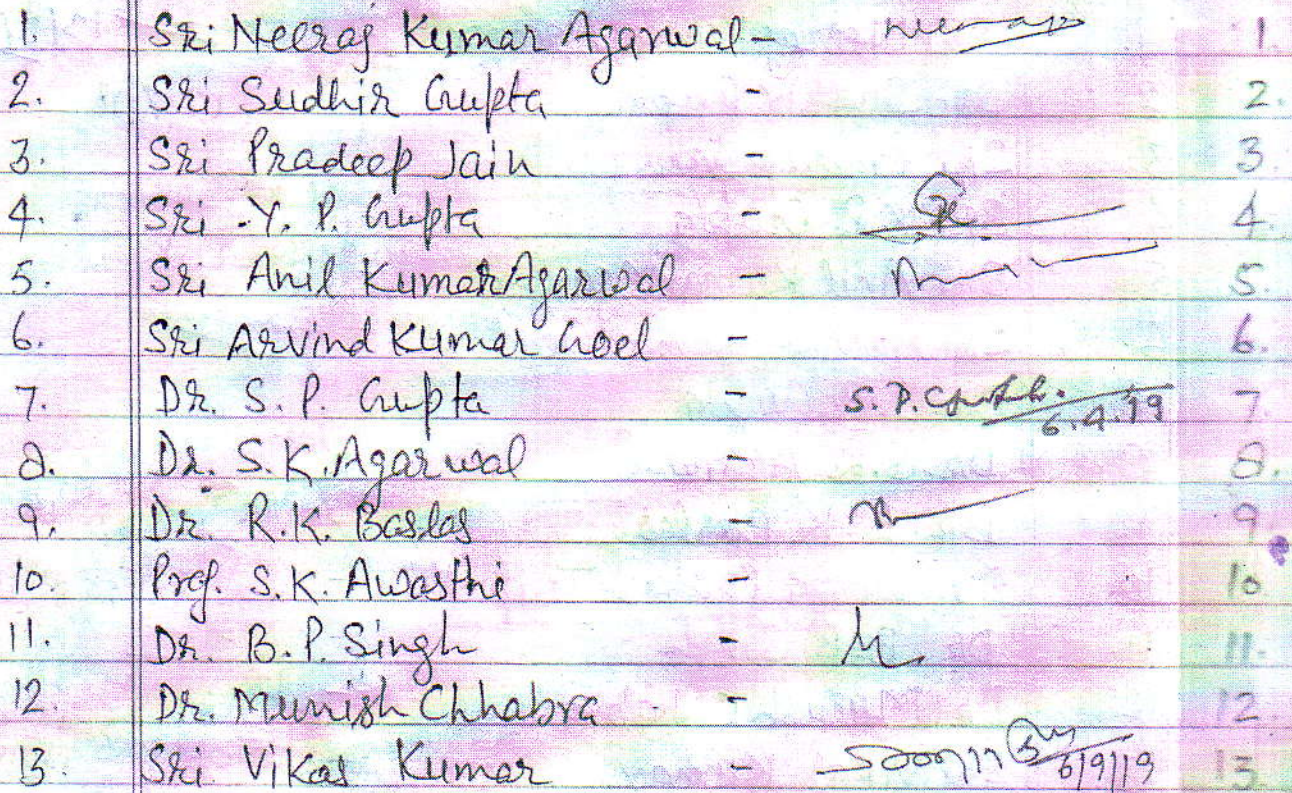 1. Sri Neeraj Kumar Agarwal - Neeraj 1.
2. Sri Sudhir Gupta - 2.
3. Sri Pradeep Jain - 3.
4. Sri Y. P. Gupta - 4.
5. Sri Anil Kumar Agarwal - 5.
6. Sri Arvind Kumar Goel - 6.
7. Dr. S. P. Gupta - S. P. Gupta 7
8. Dr. S. K. Agarwal - 8.
9. Dr. R. K. Baslas - 9
10. Prof. S. K. Awasthi - 10
11. Dr. B. P. Singh - 11.
12. Dr. Munish Chhabra - 12.
13. Sri Vikas Kumar - 6/9/19 13.